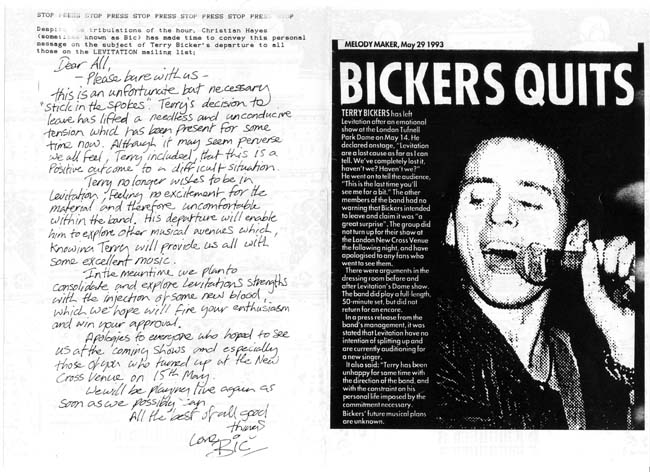 STOP PRESS STOP PRESS STOP PRESS STOP PRESS STOP PRESS STOP PRESS STOP
Despite the tribulations of the hour, Christian Hayes
(sometimes known as Bic) has made time to convey this personal
message on the subject of Terry Bicker's departure to all
those on the LEVITATION mailing list;
Dear All,
- Please bare with us -
this is an unfortunate but necessary
"stick in the spokes". Terry's decision to
leave has lifted a needless and unconducive
tension which has been present for some
time now. Although it may seem perverse
we all feel, Terry included, that this is a
Positive outcome to a difficult situation.
Terry no longer wishes to be in
Levitation, feeling no excitement for the
material and therefore uncomfortable
within the band. His departure will enable
him to explore other musical avenues which,
Knowing Terry will provide us all with
some excellent music.
In the meantime we plan to
consolidate and explore Levitation's strengths
with the injection of some new blood,
which we hope will fire your enthusiasm
and win your approval.
Apologies to everyone who hoped to see
us at the coming shows and especially
those of you who turned up at the New
Cross Venue on 15th May.
We will be playing live again as
soon as we possibly can
All the best of all good
things
Love,
Bic
MELODY MAKER, May 29 1993
BICKERS QUITS
TERRY BICKERS has left
Levitation after an emotional
show at the London Tufnell
Park Dome on May 14. He
declared onstage, "Levitation
are a lost cause as far as I can
tell. We've completely lost it,
haven't we? Haven't we?"
He went on to tell the audience,
"This is the last time you'll
see me for a bit." The other
members of the band had no
warning that Bickers intended
to leave and claim it was "a
great surprise". The group did
not turn up for their show at
the London New Cross Venue
the following night, and have
apologised to any fans who
went to see them.
There were arguments in the
dressing room before and
after Levitation's Dome show.
The band did play a full-length,
50-minute set, but did not
return for an encore.
In a press release from the
band's management, it was
stated that Levitation have no
intention of splitting up and
are currently auditioning for
a new singer.
It also said: "Terry has been
unhappy for some time with
the direction of the band, and
with the constraint on his
personal life imposed by the
commitment necessary.
Bickers' future musical plans
are unknown.